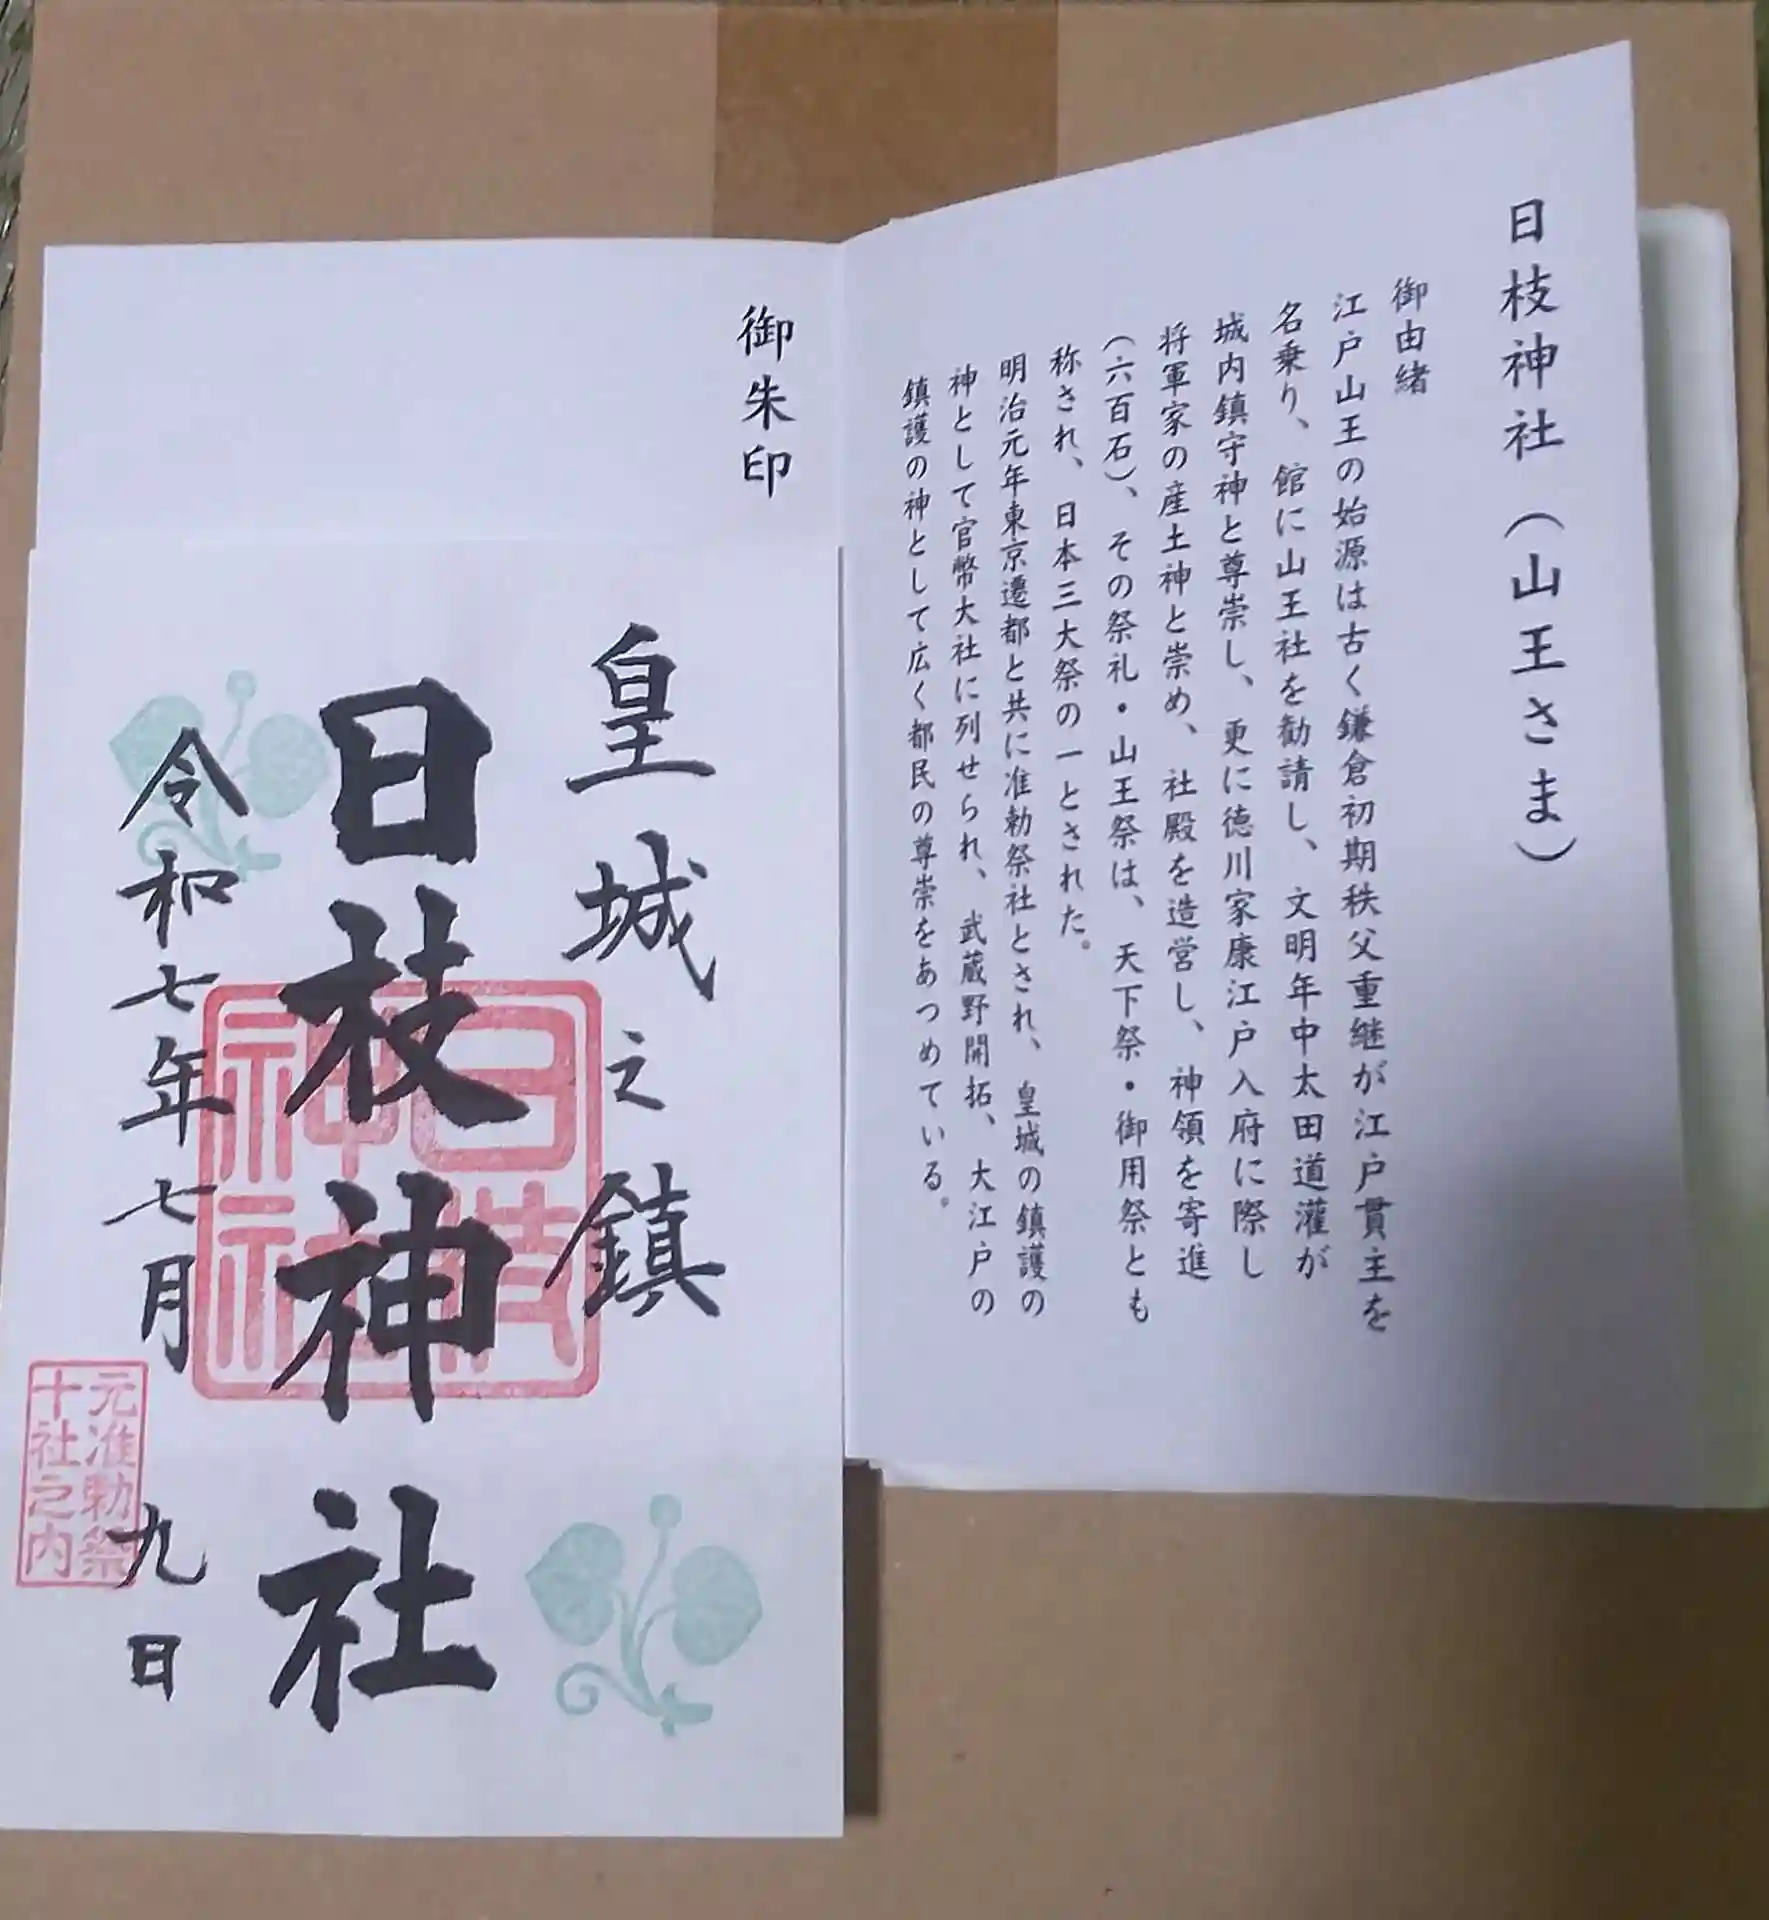 日枝神社(山王さま)
御由緒
江戸山王の始源は古く鎌倉初期秩父重継が江戸貫主を
名乗り、館に山王社を勧請し、文明年中太田道灌が
城内鎮守神と尊崇し、更に徳川家康江戸入府に際し
将軍家の産土神と崇め、社殿を造営し、神領を寄進
(六百石)、その祭礼・山王祭は、天下祭・御用祭とも
称され、日本三大祭の一とされた。
明治元年東京遷都と共に准勅祭社とされ、皇城の鎮護の
神として官幣大社に列せられ、武蔵野開拓、大江戸の
鎮護の神として広く都民の尊崇をあつめている。
御朱印
皇城之鎮
日枝神社
日枝
神社
令和七年七月九日
元准勅祭
十社之内